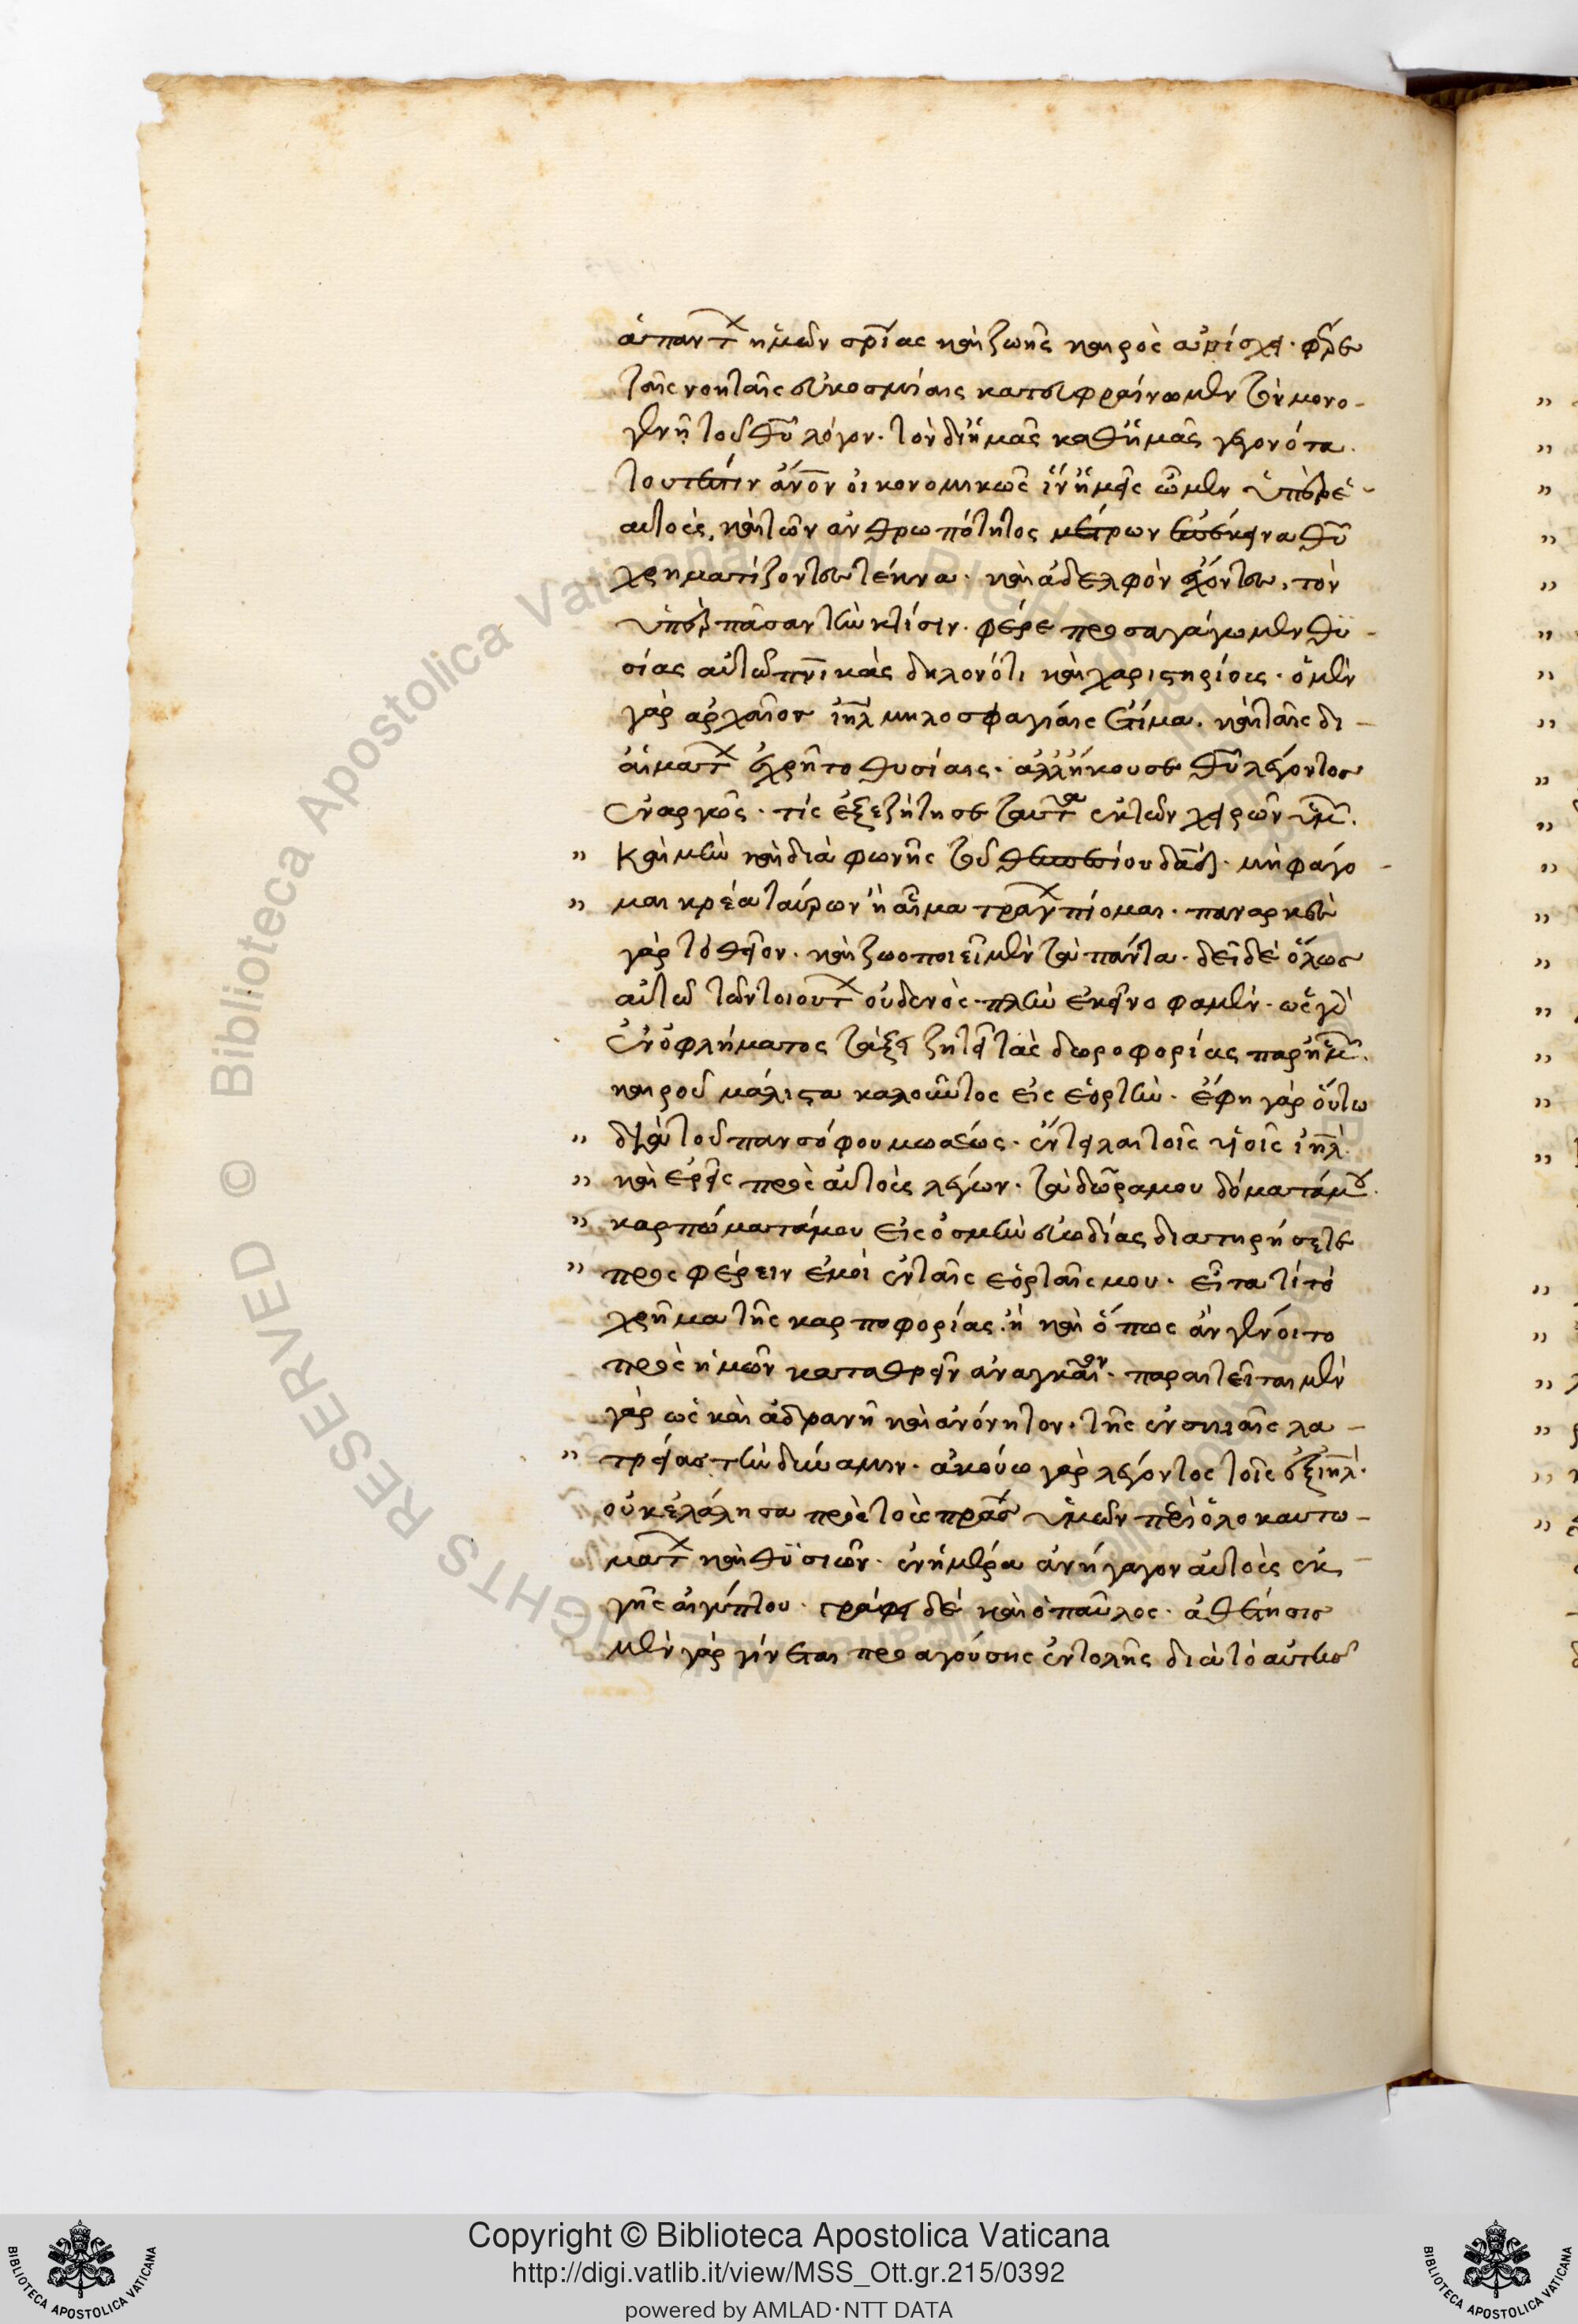 ἁπάντ ἡμῶν σρίας καὶ ζωῆς καιρὸς ἀνίσχει. φέρε
ταῖς νοηταῖς εὐκοσμίαις κατευφραίνωμεν τὸν μονο-
γενῆ τοῦ θυ λόγον. τὸν δι ἡμᾶς καθ ἡμᾶς γεγονότα.
τουτέστιν ανον οἰκονομικῶς ἵν ἡμεῖς ὦμεν ὑπὲρ ἑ-
αυτοὺς, καὶ τῶν ἀνθρωπότητος μέτρων ἐπέκεινα θυ
χρηματίζοντες τέκνα. καὶ ἀδελφὸν ἔχοντες, τὸν
ὑπὲρ πᾶσαν τὴν κτίσιν. φέρε προσαγάγωμεν θυ-
σίας αὐτῶ πνικὰς δηλονότι καὶ χαριστηρίους. ὁ μὲν
γὰρ ἀρχαῖος ιηλ μηλοσφαγίαις ἐτίμα. καὶ ταῖς δι
αἱμάτ ἐχρῆτο θυσίαις. ἀλλ ἤκουσε θυ λέγοντος
ἐναργῶς. τίς ἐξεζήτησε ταῦτα ἐκ τῶν χειρῶν ὑμ.
" Καὶ μὴν καὶ διὰ φωνῆς τοῦ θεσπεσίου δαδ. μὴ φάγο-
" μαι κρέα ταύρων ἢ αἷμα τράγ πίομαι. παναρκὲς
γὰρ τὸ θεῖον. καὶ ζωοποιεῖ μὲν τὰ πάντα. δεῖ δὲ ὅλως
αὐτῶ τῶν τοιούτ οὐδενός. πλὴν ἐκεῖνο φαμέν. ὡς ἐν
ὀφλήματος τάξει ζητεῖ τὰς δωροφορίας παρ ἡμ.
καιροῦ μάλιστα καλοῦντος εἰς ἑορτήν. ἔφη γὰρ οὕτω
" διὰ τοῦ πανσόφου μωσέως. ἔντειλαι τοῖς υἱοῖς ιηλ.
" καὶ ἐρεῖς πρὸς αὐτοὺς λέγων. τὰ δῶρα μου δόματά μου.
" καρπώματά μου εἰς ὀσμὴν εὐωδίας διατηρήσετε
" προσφέρειν ἐμοὶ ἐν ταῖς ἑορταῖς μου. εἶτα τί τὸ
χρῆμα τῆς καρποφορίας. ἢ καὶ ὅπως ἂν γένοιτο
πρὸς ἡμῶν καταθρεῖν ἀναγκαῖον. παραιτεῖται μὲν
γὰρ ὡς καὶ ἀδρανῆ καὶ ἀνόνητον. τῆς ἐν σκιαῖς λα-
" τρείας τὴν δύναμιν. ἀκούω γὰρ λέγοντος τοῖς ἐξ ιηλ.
οὐκ ἐλάλησα πρὸς τοὺς πρας ὑμῶν περὶ ὁλοκαυτω-
μάτ καὶ θυσιῶν. ἐν ἡμέρα ἀνήγαγον αὐτοὺς ἐκ
γῆς αἰγύπτου. γράφει δὲ καὶ ὁ παῦλος. ἀθέτησις
μὲν γὰρ γίνεται προαγούσης ἐντολῆς διὰ τὸ αὐτῆς
Copyright © Biblioteca Apostolica Vaticana
http://digi.vatlib.it/view/MSS_Ott.gr.215/0392
powered by AMLAD·NTT DATA